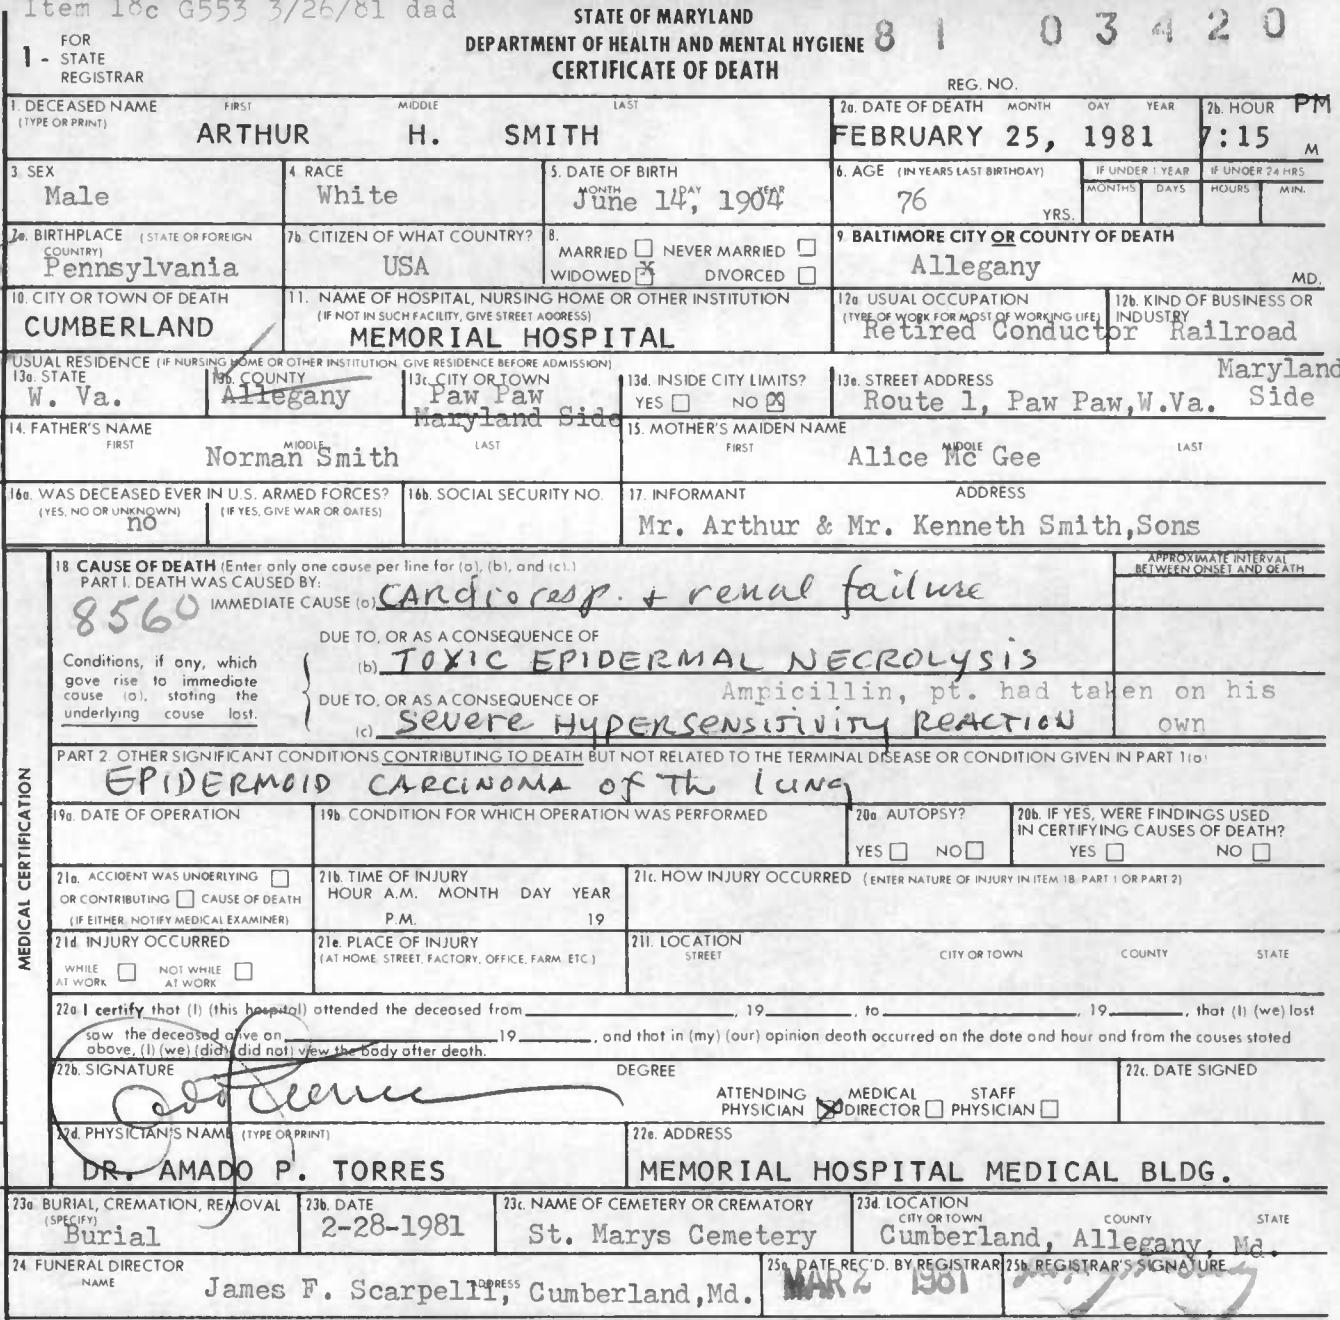 Item 18c G553 3/26/81 dad
1 - FOR STATE REGISTRAR
STATE OF MARYLAND
DEPARTMENT OF HEALTH AND MENTAL HYGIENE
CERTIFICATE OF DEATH
81 03420
REG. NO.
1. DECEASED NAME (TYPE OR PRINT) FIRST MIDDLE LAST
ARTHUR H. SMITH
2a. DATE OF DEATH MONTH DAY YEAR
FEBRUARY 25, 1981
2b. HOUR PM
7:15 M
3. SEX
Male
4. RACE
White
5. DATE OF BIRTH
MONTH DAY YEAR
June 14, 1904
6. AGE (IN YEARS LAST BIRTHDAY)
76 YRS.
IF UNDER 1 YEAR
MONTHS DAYS
IF UNDER 24 HRS
HOURS MIN.
7a. BIRTHPLACE (STATE OR FOREIGN COUNTRY)
Pennsylvania
7b. CITIZEN OF WHAT COUNTRY?
USA
8.
MARRIED NEVER MARRIED
WIDOWED X DIVORCED
9. BALTIMORE CITY OR COUNTY OF DEATH
Allegany MD.
10. CITY OR TOWN OF DEATH
CUMBERLAND
11. NAME OF HOSPITAL, NURSING HOME OR OTHER INSTITUTION
(IF NOT IN SUCH FACILITY, GIVE STREET ADDRESS)
MEMORIAL HOSPITAL
12a. USUAL OCCUPATION
(TYPE OF WORK FOR MOST OF WORKING LIFE)
Retired Conductor
12b. KIND OF BUSINESS OR INDUSTRY
Railroad
USUAL RESIDENCE (IF NURSING HOME OR OTHER INSTITUTION GIVE RESIDENCE BEFORE ADMISSION)
13a. STATE
W. Va.
13b. COUNTY
Allegany
13c. CITY OR TOWN
Paw Paw
Maryland Side
13d. INSIDE CITY LIMITS?
YES NO X
13e. STREET ADDRESS
Route 1, Paw Paw,W.Va. Maryland Side
14. FATHER'S NAME
FIRST MIDDLE LAST
Norman Smith
15. MOTHER'S MAIDEN NAME
FIRST MIDDLE LAST
Alice Mc Gee
16a. WAS DECEASED EVER IN U.S. ARMED FORCES?
(YES, NO OR UNKNOWN) (IF YES, GIVE WAR OR DATES)
no
16b. SOCIAL SECURITY NO.
17. INFORMANT ADDRESS
Mr. Arthur & Mr. Kenneth Smith,Sons
MEDICAL CERTIFICATION
18 CAUSE OF DEATH (Enter only one cause per line for (a), (b), and (c).)
APPROXIMATE INTERVAL BETWEEN ONSET AND DEATH
PART 1. DEATH WAS CAUSED BY:
8560
IMMEDIATE CAUSE (a) CArdioresp. + renal failure
Conditions, if any, which gave rise to immediate cause (a), stating the underlying cause last.
DUE TO, OR AS A CONSEQUENCE OF
(b) TOXIC EPIDERMAL NECROLYSIS
DUE TO, OR AS A CONSEQUENCE OF
Ampicillin, pt. had taken on his own
(c) Severe HYPERSENSITIVITY REACTION
PART 2. OTHER SIGNIFICANT CONDITIONS CONTRIBUTING TO DEATH BUT NOT RELATED TO THE TERMINAL DISEASE OR CONDITION GIVEN IN PART 1(a)
EPIDERMOID CARCINOMA of Th lung
19a. DATE OF OPERATION
19b. CONDITION FOR WHICH OPERATION WAS PERFORMED
20a. AUTOPSY?
YES NO
20b. IF YES, WERE FINDINGS USED IN CERTIFYING CAUSES OF DEATH?
YES NO
21a. ACCIDENT WAS UNDERLYING
OR CONTRIBUTING CAUSE OF DEATH
(IF EITHER, NOTIFY MEDICAL EXAMINER)
21b. TIME OF INJURY
HOUR A.M. MONTH DAY YEAR
P.M. 19
21c. HOW INJURY OCCURRED (ENTER NATURE OF INJURY IN ITEM 18 PART 1 OR PART 2)
21d. INJURY OCCURRED
WHILE AT WORK NOT WHILE AT WORK
21e. PLACE OF INJURY
(AT HOME, STREET, FACTORY, OFFICE, FARM, ETC.)
21f. LOCATION
STREET CITY OR TOWN COUNTY STATE
22a I certify that (I) (this hospital) attended the deceased from , 19 , to , 19 , that (I) (we) last
saw the deceased alive on 19 , and that in (my) (our) opinion death occurred on the date and hour and from the causes stated
above, (I) (we) (did) (did not) view the body after death.
22b. SIGNATURE DEGREE
ATTENDING PHYSICIAN X MEDICAL DIRECTOR STAFF PHYSICIAN
22c. DATE SIGNED
22d. PHYSICIAN'S NAME (TYPE OR PRINT)
DR. AMADO P. TORRES
22e. ADDRESS
MEMORIAL HOSPITAL MEDICAL BLDG.
23a. BURIAL, CREMATION, REMOVAL
(SPECIFY)
Burial
23b. DATE
2-28-1981
23c. NAME OF CEMETERY OR CREMATORY
St. Marys Cemetery
23d. LOCATION
CITY OR TOWN COUNTY STATE
Cumberland, Allegany, Md.
24. FUNERAL DIRECTOR
NAME ADDRESS
James F. Scarpelli, Cumberland,Md.
25a. DATE REC'D. BY REGISTRAR
MAR 2 1981
25b. REGISTRAR'S SIGNATURE